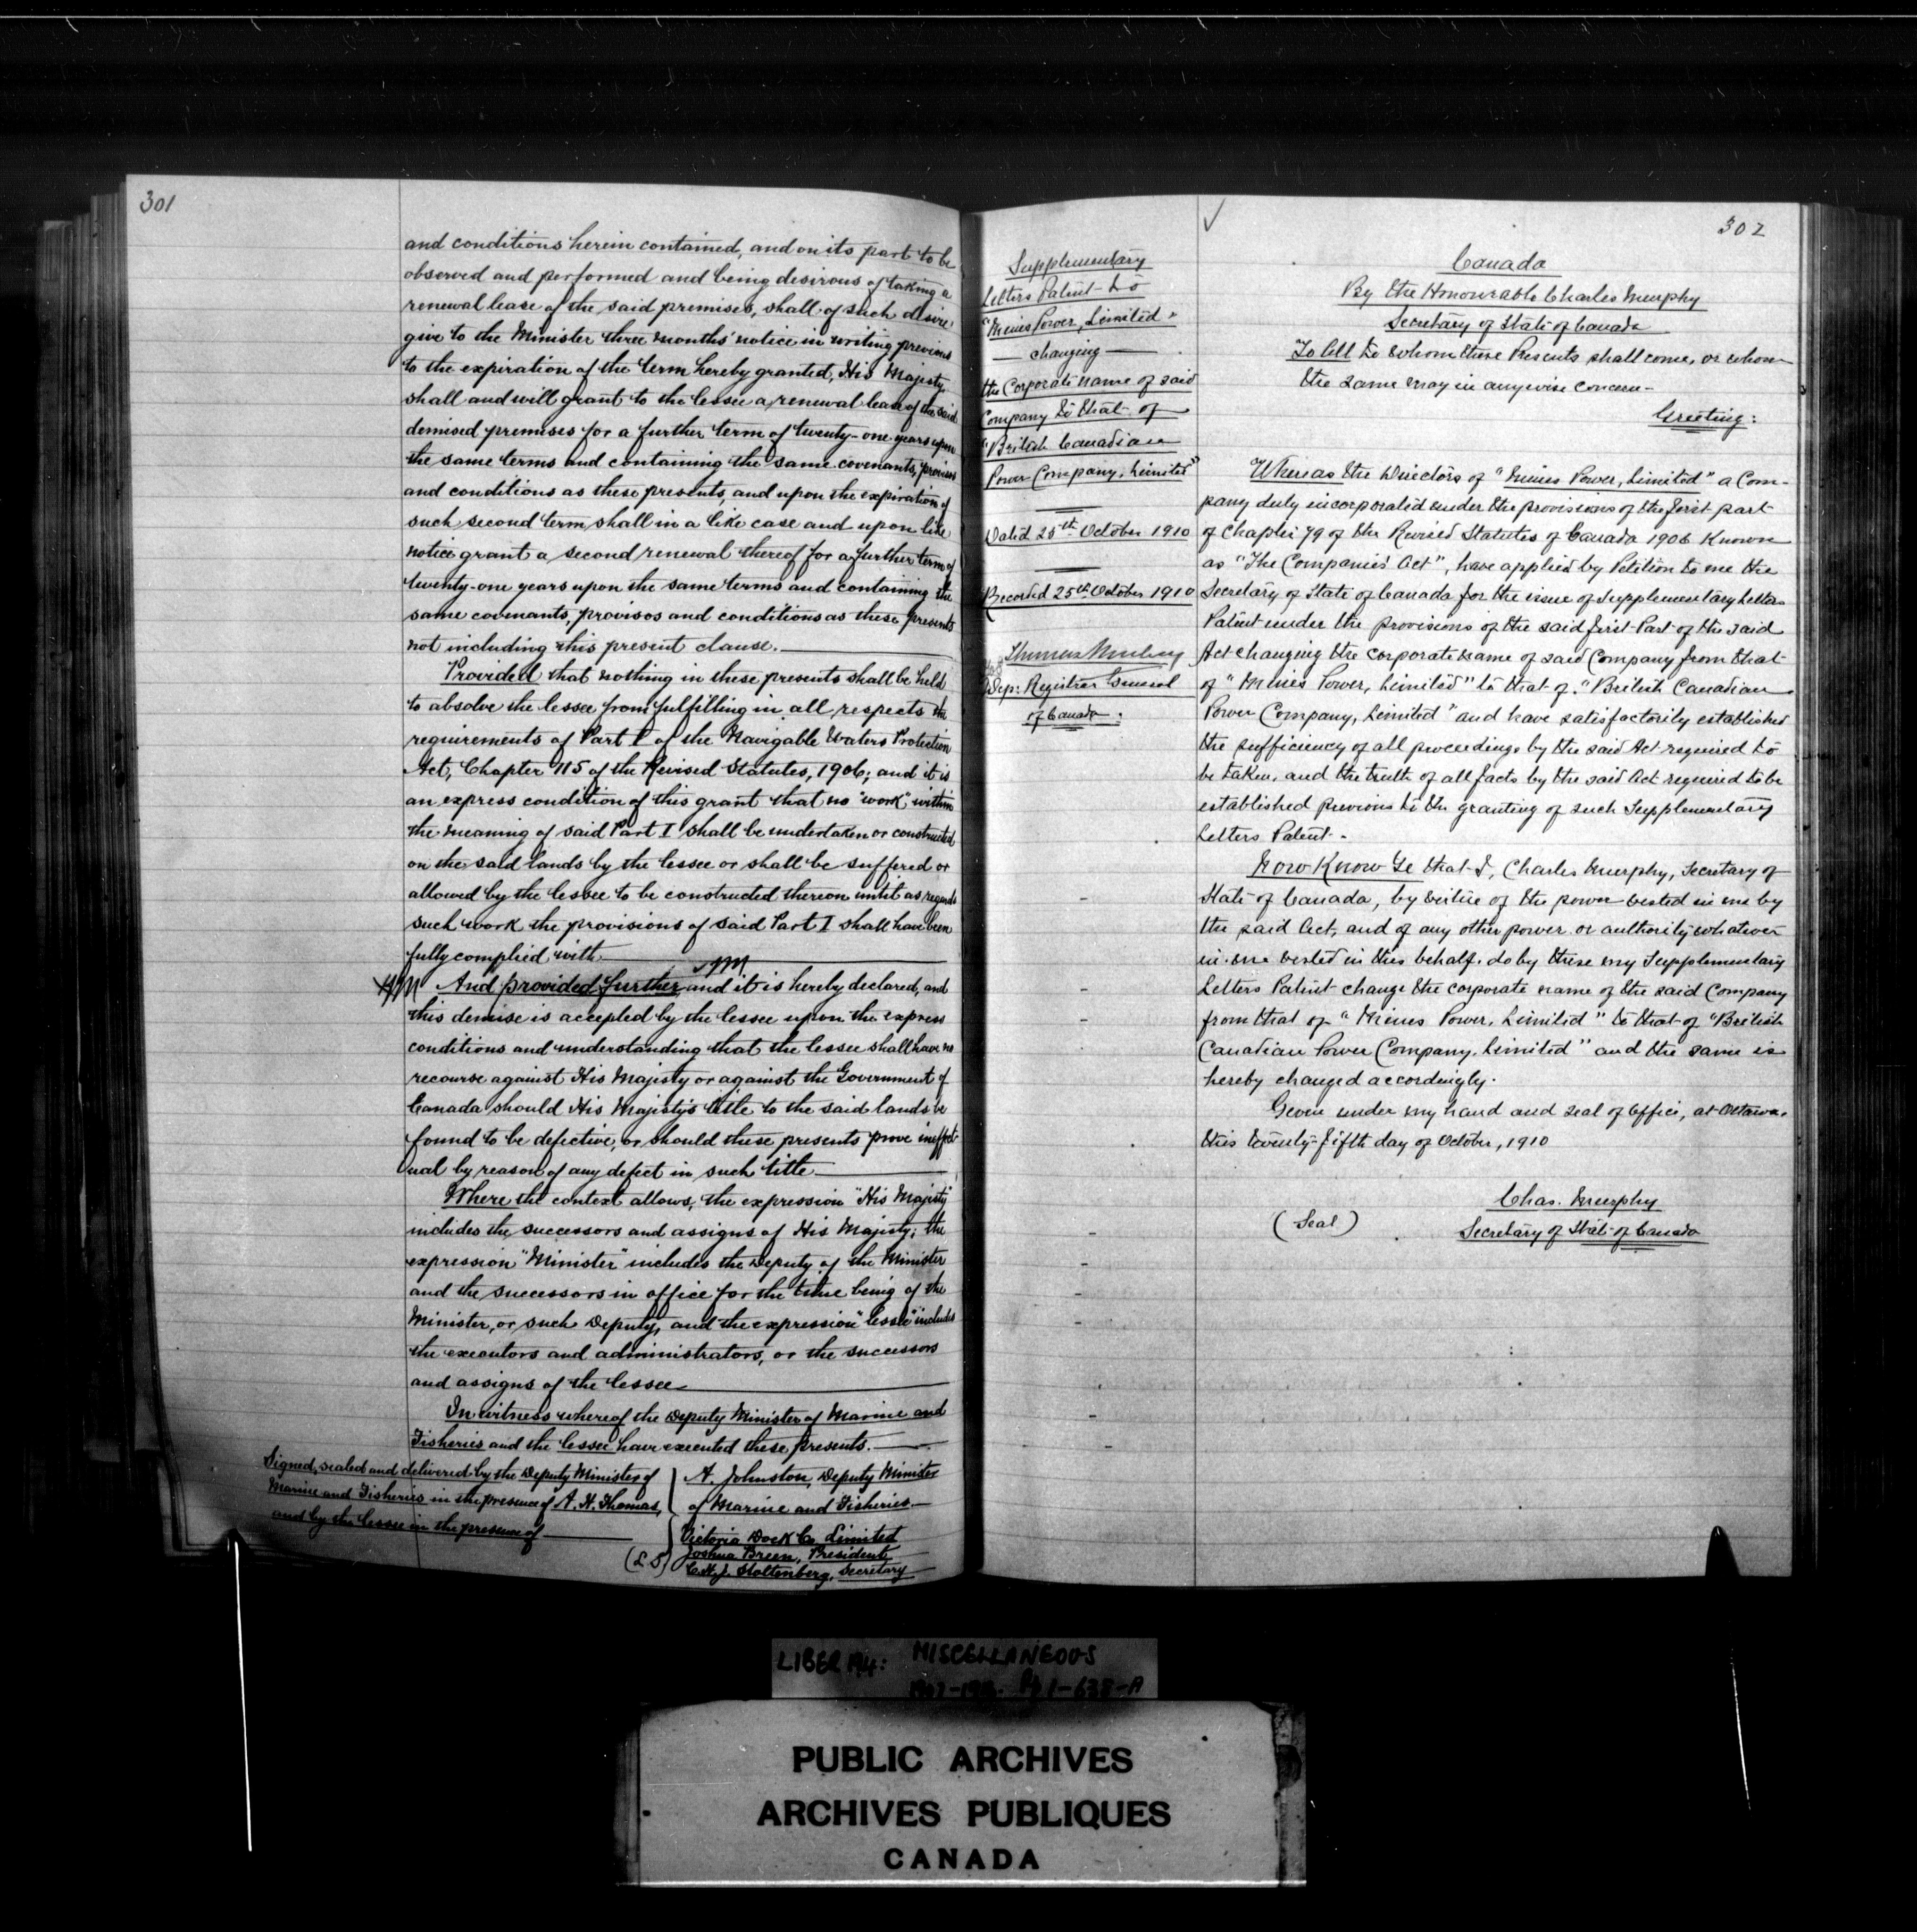 301
and conditions herein contained, and on its part to be
observed and performed and being desirous of taking a
renewal lease of the said premises, shall of such desire
give to the Minister three months' notice in writing previous
to the expiration of the term hereby granted, His Majesty
shall and will grant to the lessee a renewal lease of the said
demised premises for a further term of twenty-one years upon
the same terms and containing the same covenants, provisos
and conditions as these presents, and upon the expiration of
such second term shall in a like case and upon like
notice grant a second renewal thereof for a further term of
twenty-one years upon the same terms and containing the
same covenants, provisos and conditions as these presents
not including this present clause.
Provided that nothing in these presents shall be held
to absolve the lessee from fulfilling in all respects the
requirements of Part I of the Navigable Waters Protection
Act, Chapter 115 of the Revised Statutes, 1906; and it is
an express condition of this grant that no "work" within
the meaning of said Part I shall be undertaken or constructed
on the said lands by the lessee or shall be suffered or
allowed by the lessee to be constructed thereon until as regards
such work the provisions of said Part I shall have been
fully complied with
And provided further and it is hereby declared, and
this demise is accepted by the lessee upon the express
conditions and understanding that the lessee shall have no
recourse against His Majesty or against the Government of
Canada should His Majesty's title to the said lands be
found to be defective, or should these presents prove ineffect-
ual by reason of any defect in such title
Where the context allows, the expression "His Majesty"
includes the successors and assigns of His Majesty; the
expression "Minister" includes the Deputy of the Minister
and the successors in office for the time being of the
Minister, or such Deputy, and the expression "lessee" includes
the executors and administrators, or the successors
and assigns of the lessee
In witness whereof the Deputy Minister of Marine and
Fisheries and the lessee have executed these presents.
Signed, sealed and delivered by the Deputy Minister of
Marine and Fisheries in the presence of A. H. Thomas,
and by the lessee in the presence of
A. Johnston, Deputy Minister
of Marine and Fisheries
Victoria Dock Co Limited
(L S) Joshua Breen, President
C. H. J. Stoltenberg, Secretary
302
Supplementary
Letters Patent to
"Mines Power, Limited"
changing
the Corporate name of said
Company to that of
"British Canadian
Power Company, Limited"
Dated 25th October 1910
Recorded 25th October 1910
Thomas Mulvey
Dep: Registrar General
of Canada.
Canada
By the Honourable Charles Murphy
Secretary of State of Canada
To All to whom these Presents shall come, or whom
the same may in anywise concern-
Greeting:
Whereas the Directors of "Mines Power, Limited" a Com-
pany duly incorporated under the provisions of the first part
of Chapter 79 of the Revised Statutes of Canada 1906 Known
as "The Companies Act", have applied by Petition to me the
Secretary of State of Canada for the issue of Supplementary Letters
Patent under the provisions of the said first Part of the said
Act changing the corporate name of said Company from that
of "Mines Power, Limited" to that of "British Canadian
Power Company, Limited" and have satisfactorily established
the sufficiency of all proceedings by the said Act required to
be taken, and the truth of all facts by the said Act required to be
established previous to the granting of such Supplementary
Letters Patent.
Now Know Ye that I, Charles Murphy, Secretary of
State of Canada, by virtue of the power vested in me by
the said Act, and of any other power or authority whatever
in me vested in this behalf. do by these my Supplementary
Letters Patent change the corporate name of the said Company
from that of "Mines Power, Limited" to that of "British
Canadian Power Company, Limited" and the same is
hereby changed accordingly.
Given under my hand and seal of office, at Ottawa.
this twenty-fifth day of October, 1910
Chas. Murphy
(Seal)
Secretary of State of Canada
LIBER 194: MISCELLANEOUS
PUBLIC ARCHIVES
ARCHIVES PUBLIQUES
CANADA